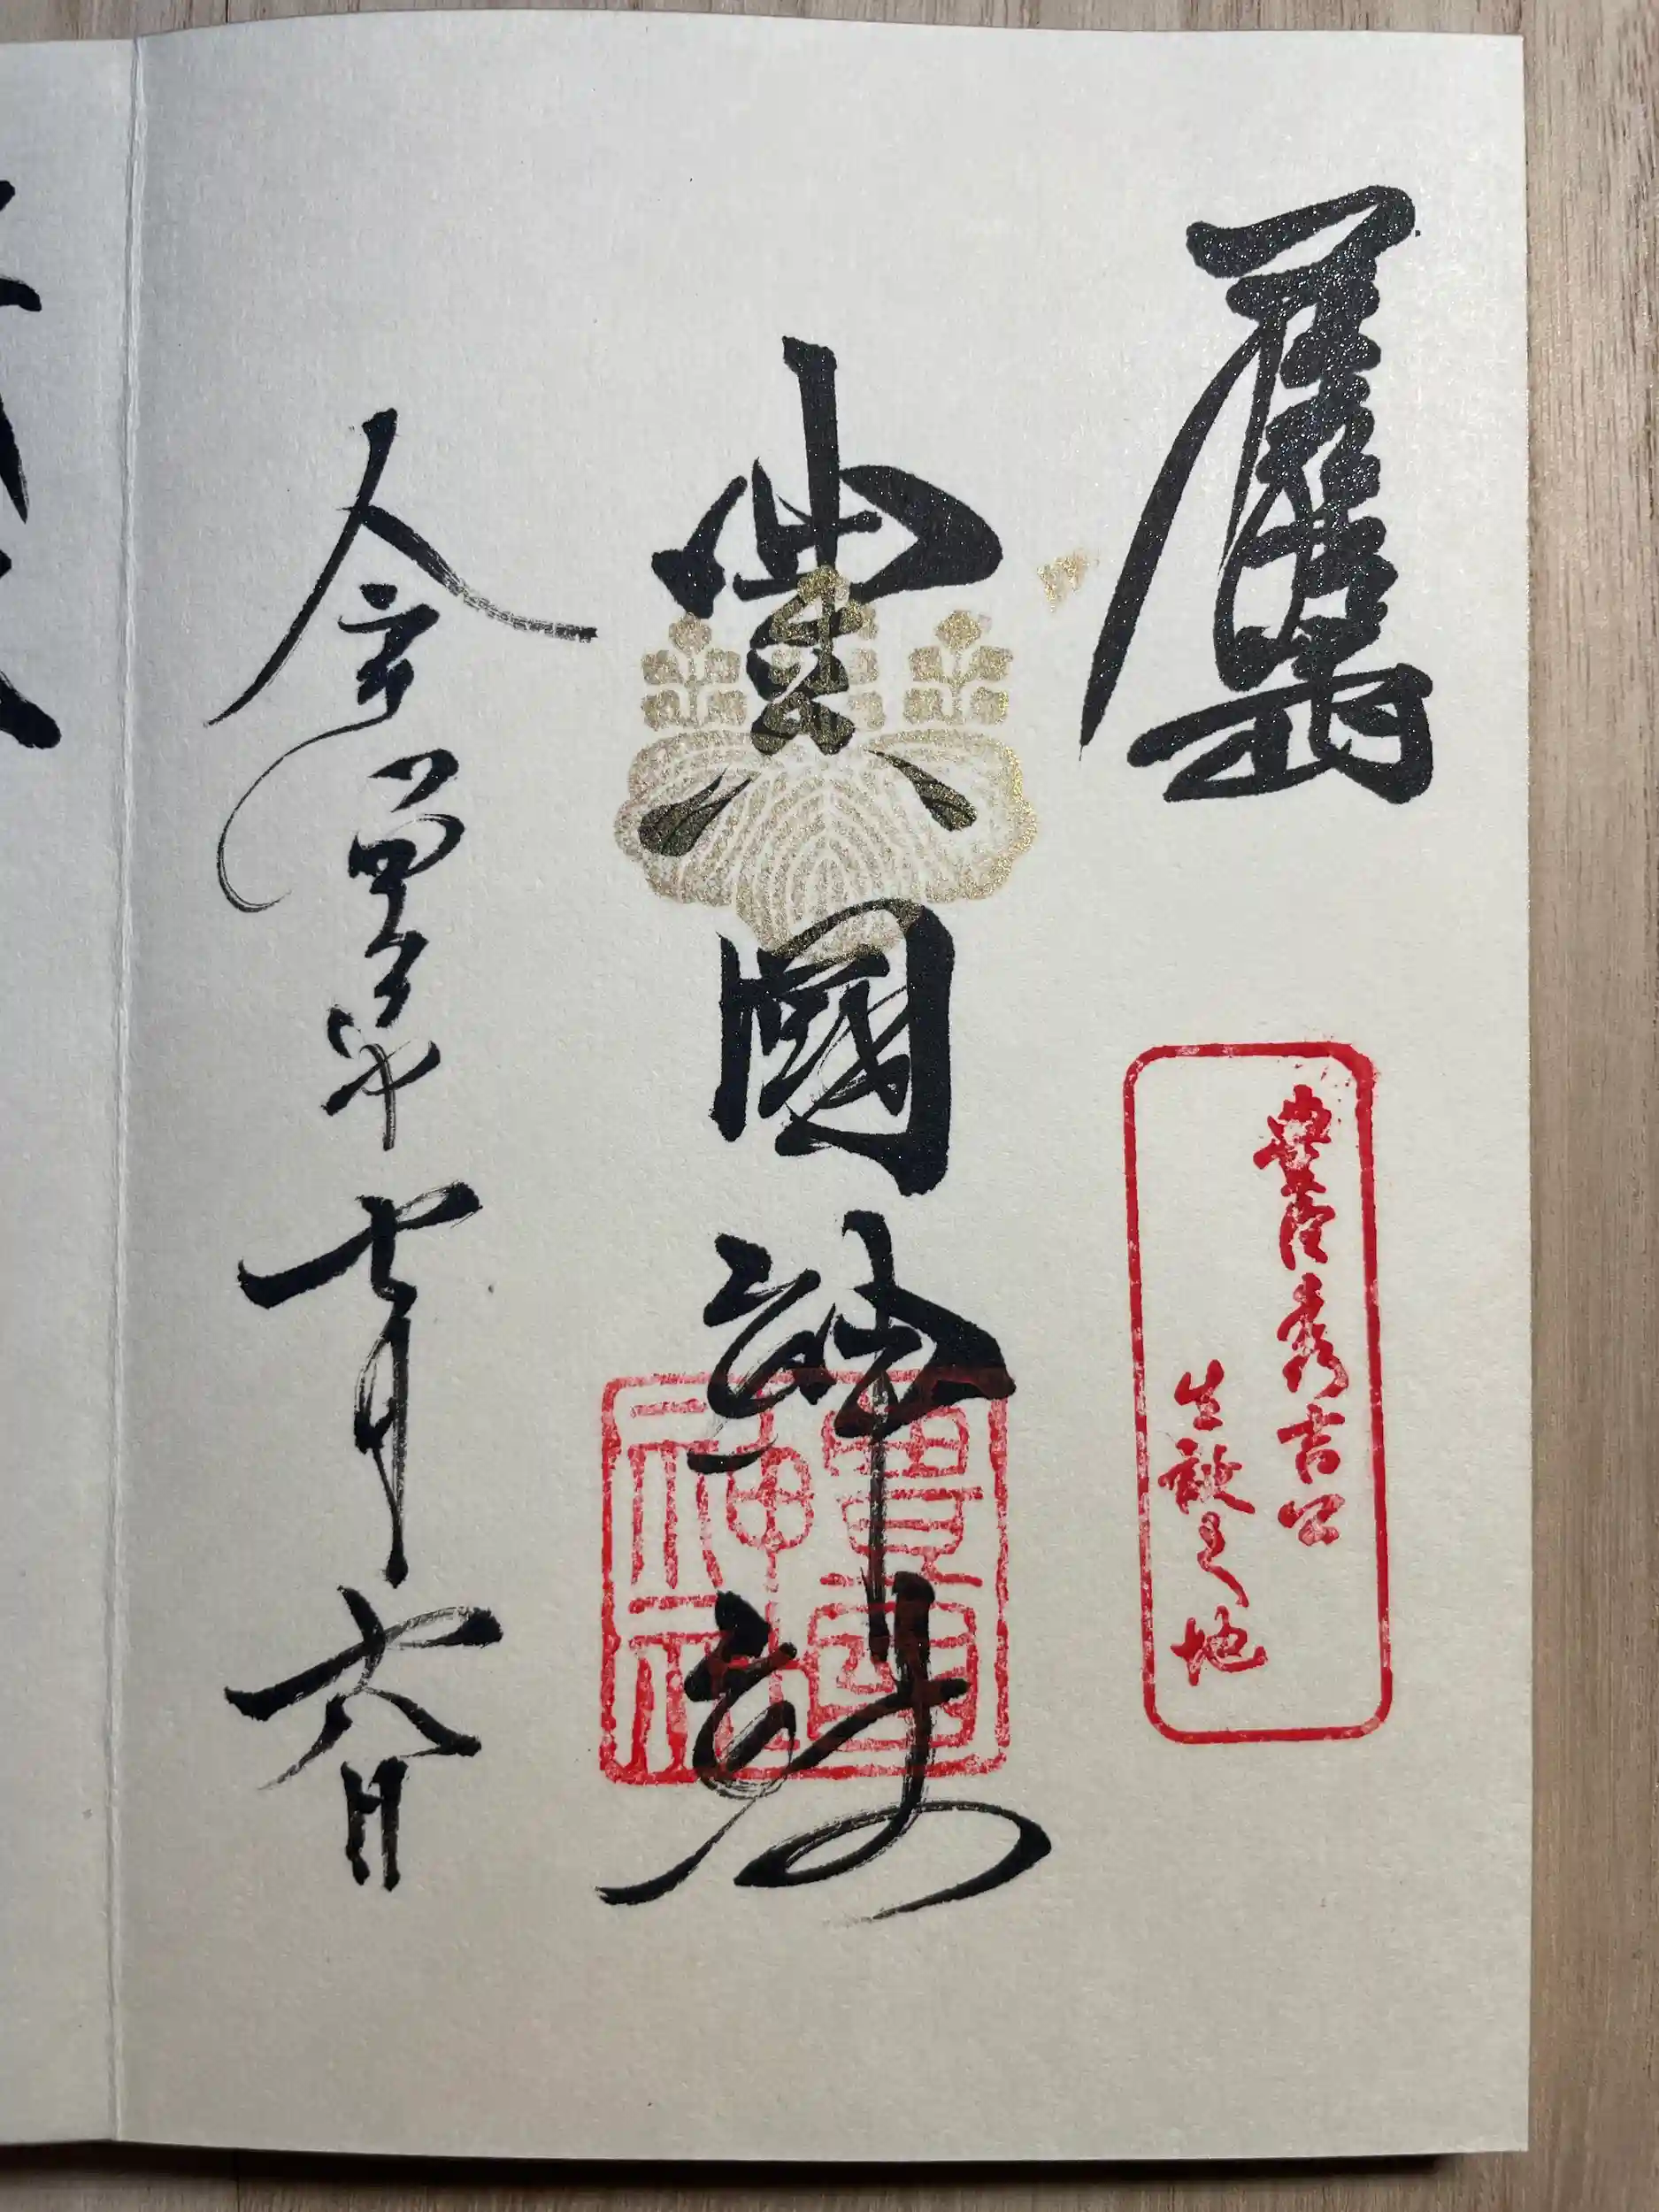 豊臣秀吉公
生誕之地
豊國神社
豊國
神社
令和四年七月六日